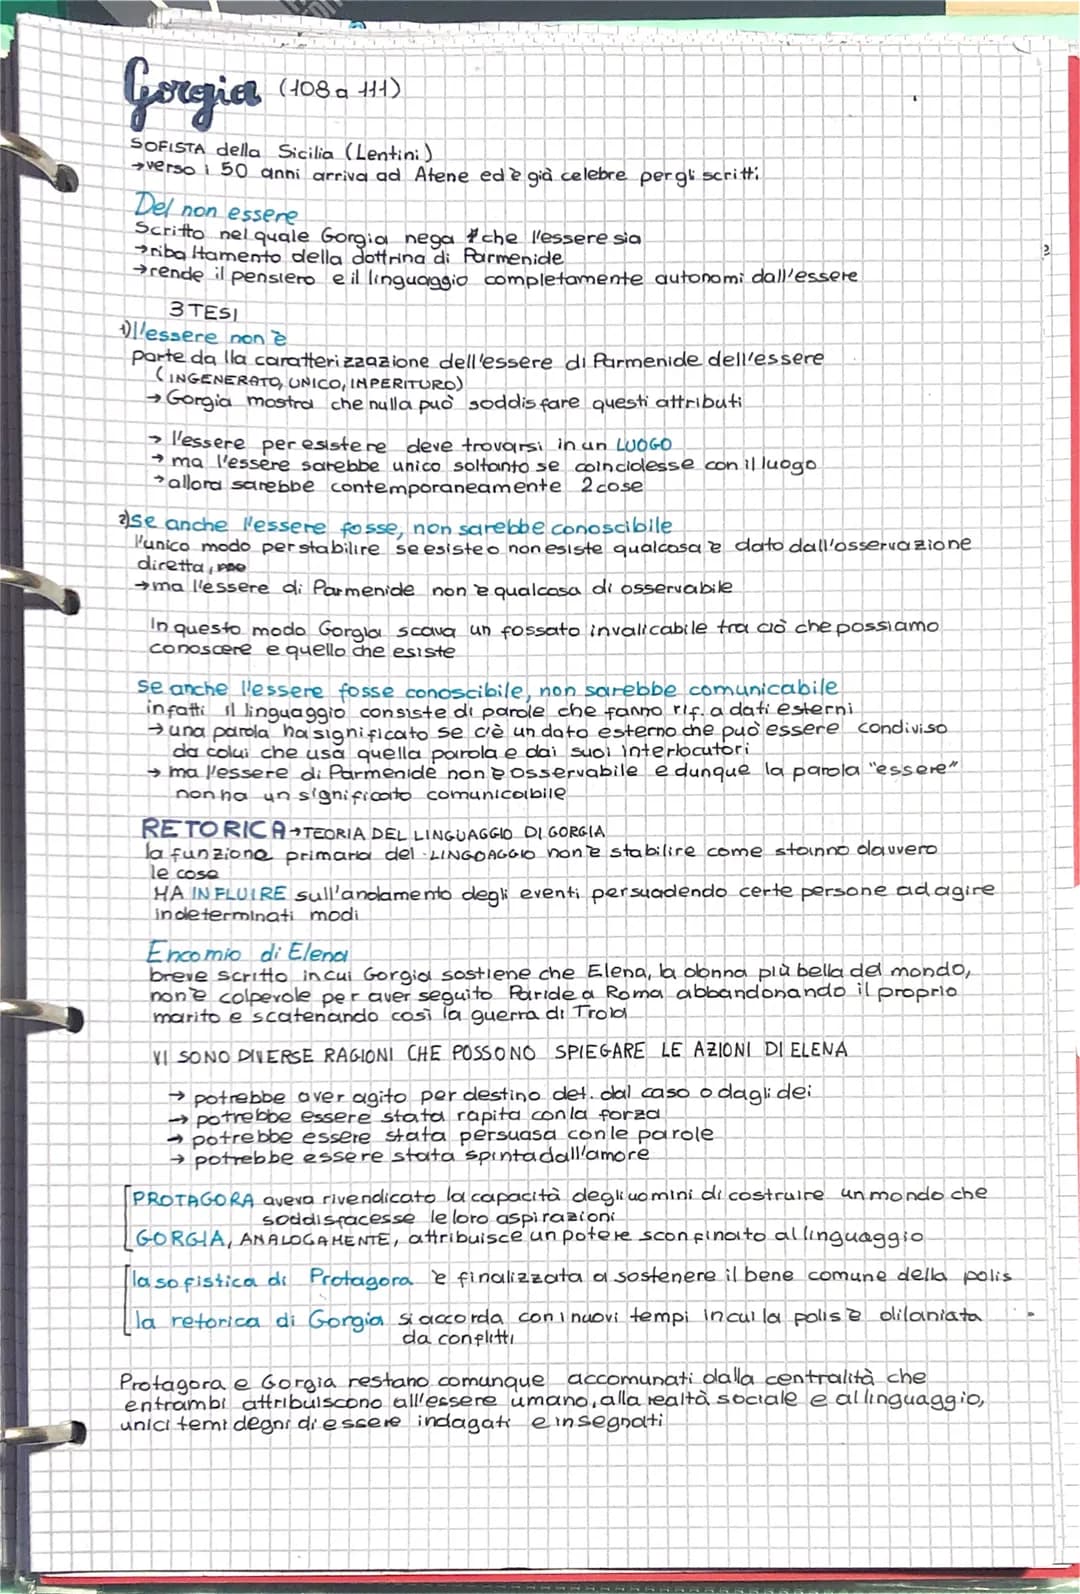 Gorgia (108 a 111)
SOFISTA della Sicilia (Lentini)
→verso i 50 anni arriva ad Atene ed è già celebre per gli scritti
Del non essere
Scritto nel quale Gorgia nega che l'essere sia
→ribaltamento della dottrina di Parmenide
→rende il pensiero e il linguaggio completamente autonomi dall'essere
3 TESI
1)l'essere non è
parte dalla caratterizzazione dell'essere di Parmenide dell'essere
(INGENERATO, UNICO, IMPERITURO)
→ Gorgia mostra che nulla può soddisfare questi attributi
→ l'essere per esistere deve trovarsi in un LUOGO
→ ma l'essere sarebbe unico soltanto se coincidesse con il luogo
→ allora sarebbe contemporaneamente 2 cose
2)se anche l'essere fosse, non sarebbe conoscibile
l'unico modo per stabilire se esiste o non esiste qualcosa è dato dall'osservazione
diretta,
→ma l'essere di Parmenide non è qualcosa di osservabile
In questo modo Gorgia scava un fossato invalicabile tra ciò che possiamo
conoscere e quello che esiste
se anche l'essere fosse conoscibile, non sarebbe comunicabile
infatti il linguaggio consiste di parole che fanno rif. a dati esterni
→ una parola ha significato se c'è un dato esterno che può essere condiviso
da colui che usa quella parola e dai suoi interlocutori
→ ma l'essere di Parmenide non è osservabile e dunque la parola "essere"
non ha un significato comunicabile
RETORICA→TEORIA DEL LINGUAGGIO DI GORGIA
la funzione primaria del LINGUAGGIO non è stabilire come stanno davvero
le cose
MA INFLUIRE sull'andamento degli eventi persuadendo certe persone ad agire
in determinati modi
Encomio di Elena
breve scritto in cui Gorgia sostiene che Elena, la donna più bella del mondo,
non è colpevole per aver seguito Paride a Roma abbandonando il proprio
marito e scatenando così la guerra di Troia
VI SONO DIVERSE RAGIONI CHE POSSONO SPIEGARE LE AZIONI DI ELENA
→ potrebbe aver agito per destino det. dal caso o dagli dei
→ potrebbe essere stata rapita con la forza
→ potrebbe essere stata persuasa con le parole
→ potrebbe essere stata spinta dall'amore
PROTAGORA aveva rivendicato la capacità degli uomini di costruire un mondo che
soddisfacesse le loro aspirazioni
GORGIA, ANALOGAMENTE, attribuisce un potere sconfinato al linguaggio
la sofistica di Protagora è finalizzata a sostenere il bene comune della polis
la retorica di Gorgia si accorda con i nuovi tempi in cui la polis è dilaniata
da conflitti
Protagora e Gorgia restano comunque accomunati dalla centralità che
entrambi attribuiscono all'essere umano, alla realtà sociale e al linguaggio,
unici temi degni di essere indagati e insegnati